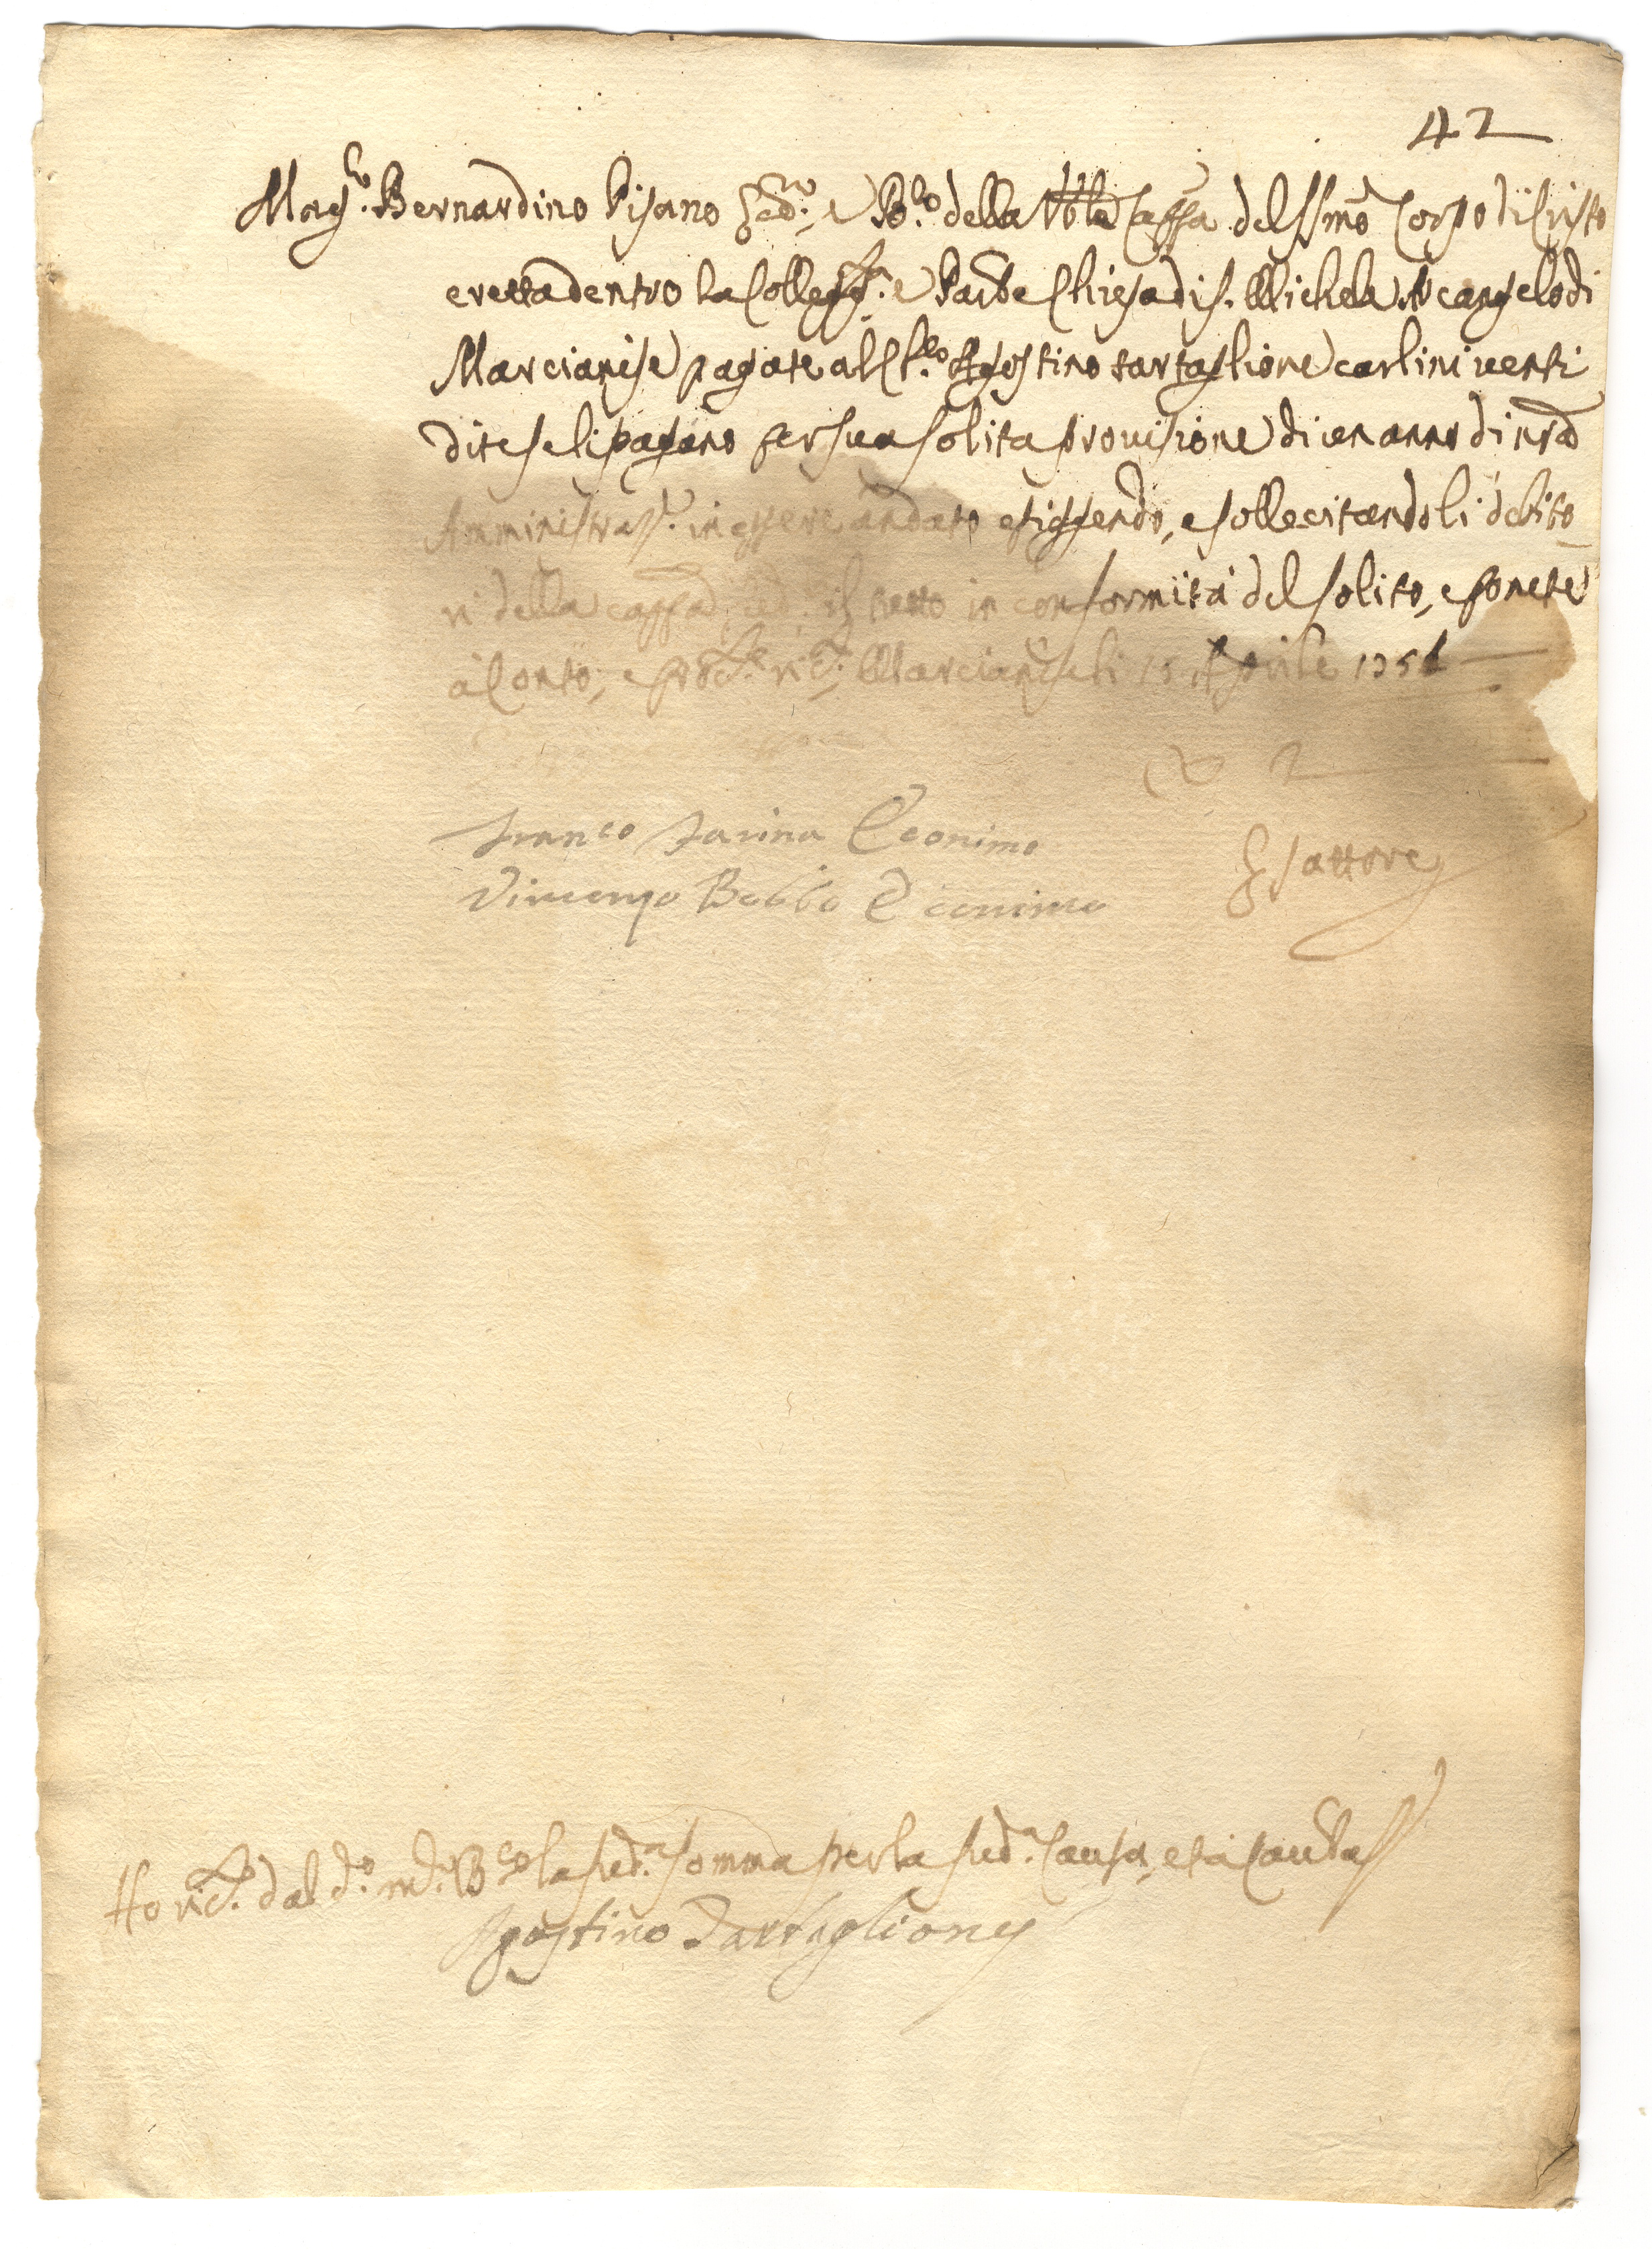 42
Mag.co Bernardino Pisano della Ven.le Cappa del SSmo Corpo di Cristo
eretta dentro la Collegg.ta e Par.le Chiesa di S. Michele Arcangelo di
Marcianise pagate al Ch.co Agostino Tartaglione carlini venti
dite seli pagano per sua solita provisione di un anno di nra
Amministraz.e in essere andato esiggendo, e sollecitando li debito-
ri della cappa in conformità del solito, e ponete
à Conto, Marcianise li 15 Aprile 1751
2
Franco Farina Econimo
Vincenzo Econimo
Esattore
Ho ric.to dal d.o la sud.a somma per la sud.a Causa, et à Cautela
Agostino Tartaglione